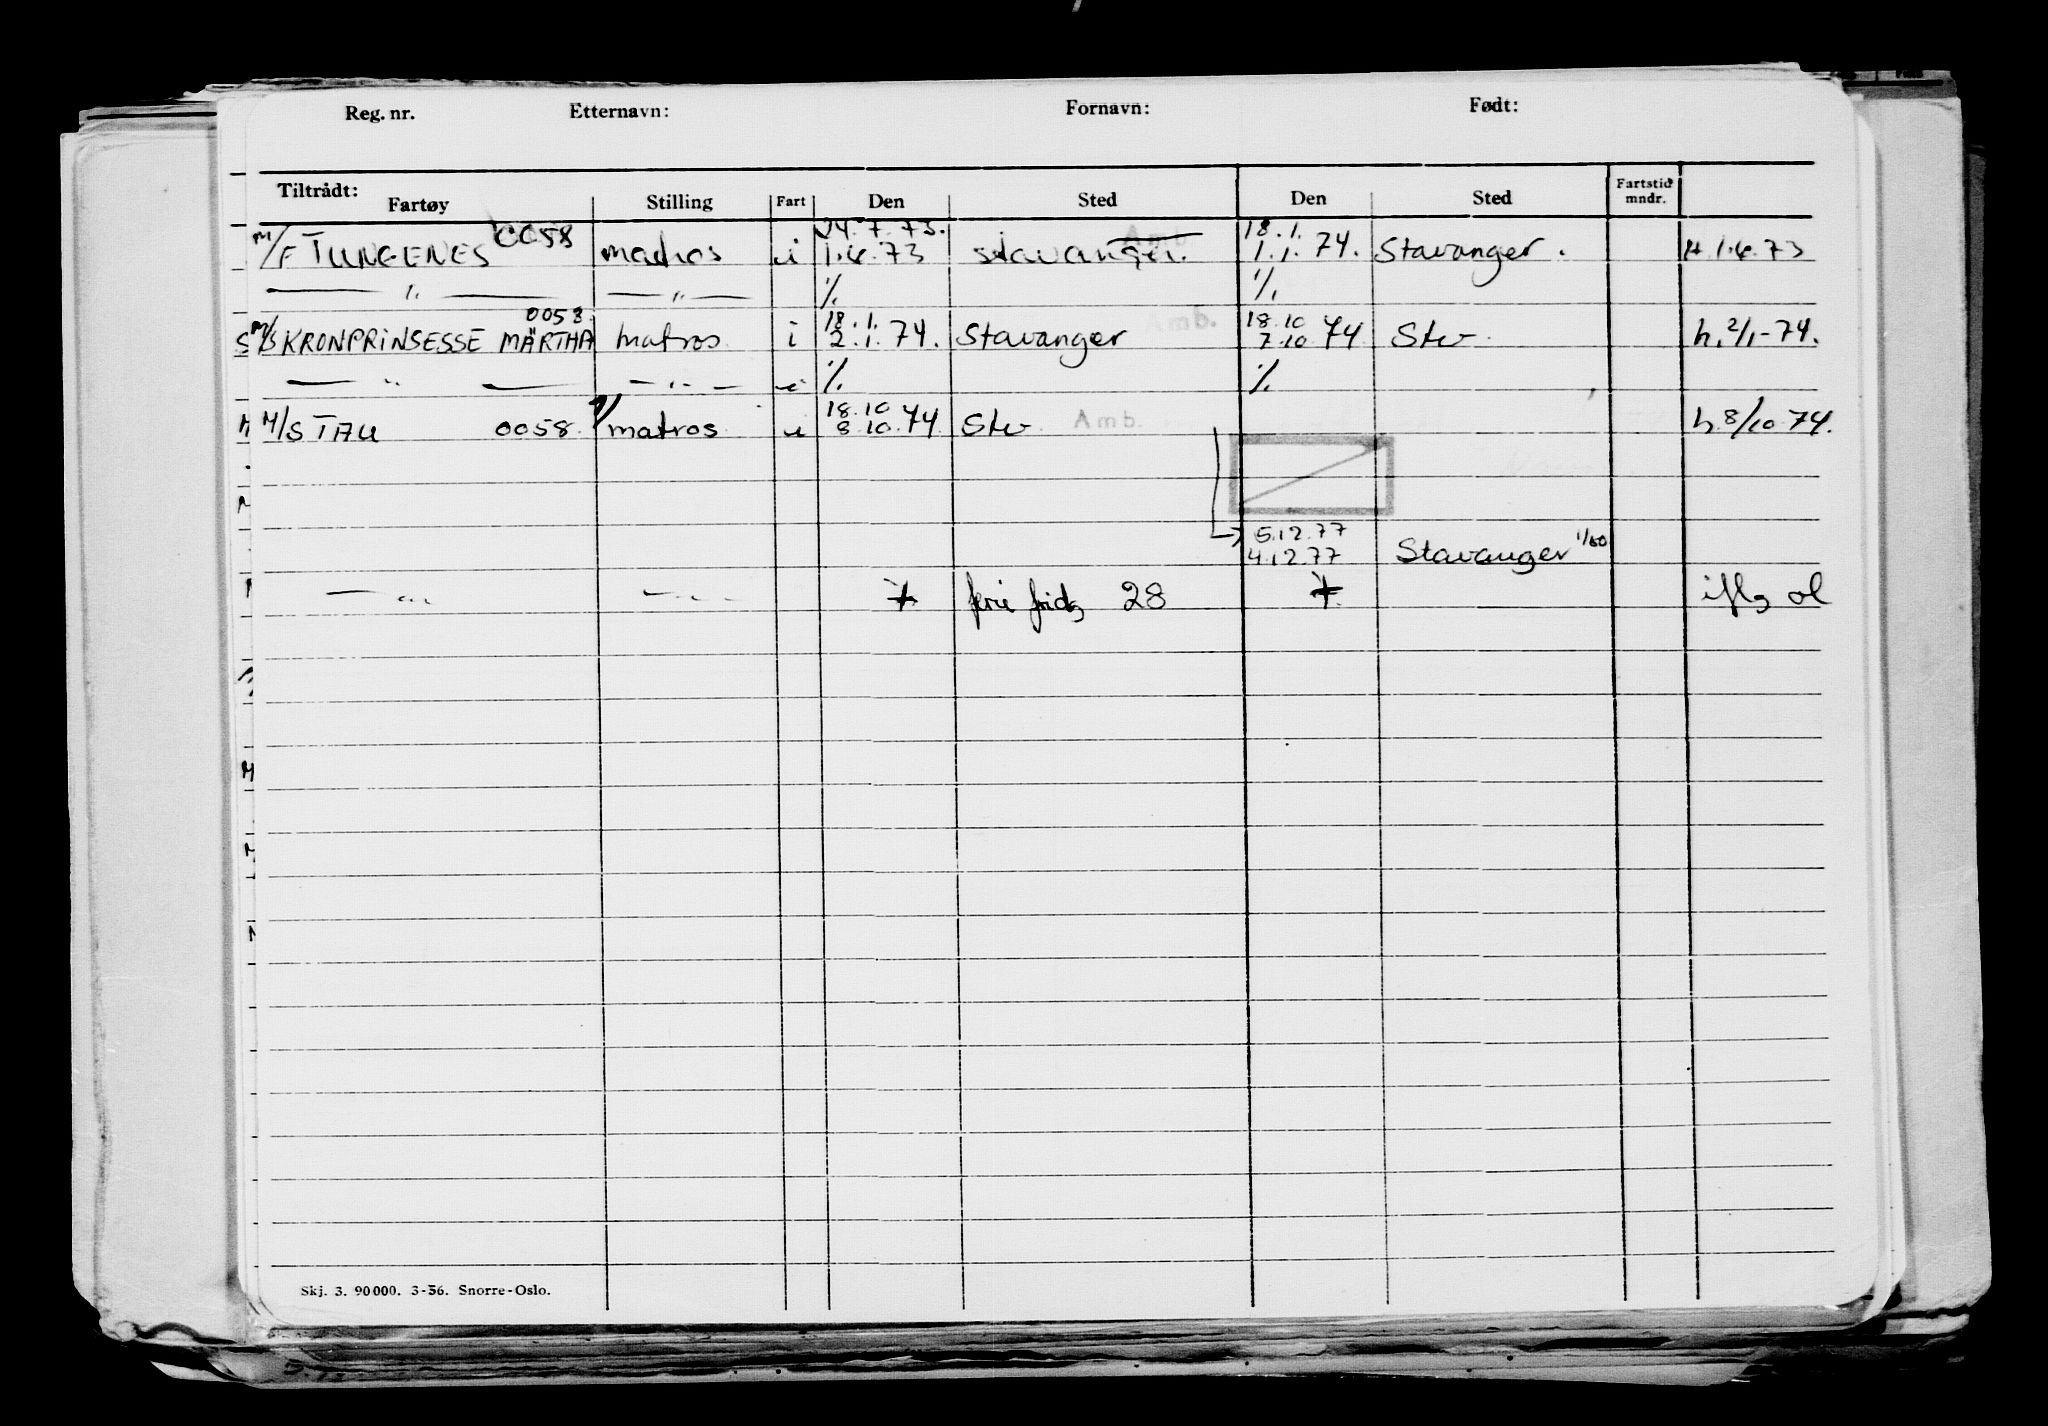 Reg. nr. Etternavn: Fornavn: Født:
Tiltrådt:
Fartøy Stilling Fart Den Sted Den Sted Fartstid mndr.
24.7.73. Amb 18.1.
M/F TUNGENES 0058 matros i 1.6.73 stavanger. 1.1.74. Stavanger. H 1.6.73
— " — — " — % %
0053 18.1. Amb. 18.10
M/S KRONPRINSESSE MÄRTHA matros i 2.1.74. Stavanger 7.10 74 Stv. h. 2/1-74.
— " — — " — i % %
18.10
M/S TAU 0058 matros i 8.10.74 Stv Amb. h. 8/10 74.
5.12.77
4.12.77 Stavanger 1/80
— " — — " — ferie frid, 28
Skj. 3. 90000. 3-56. Snorre-Oslo.